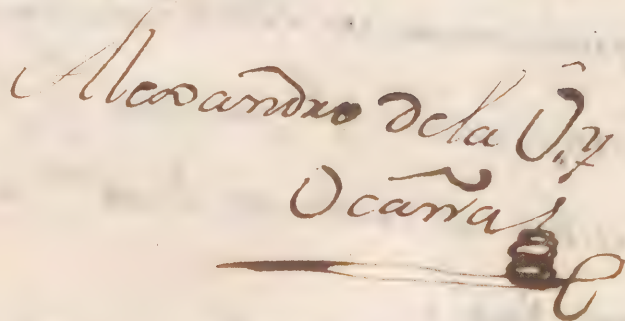 Alexandro de la O. y
Ocaña